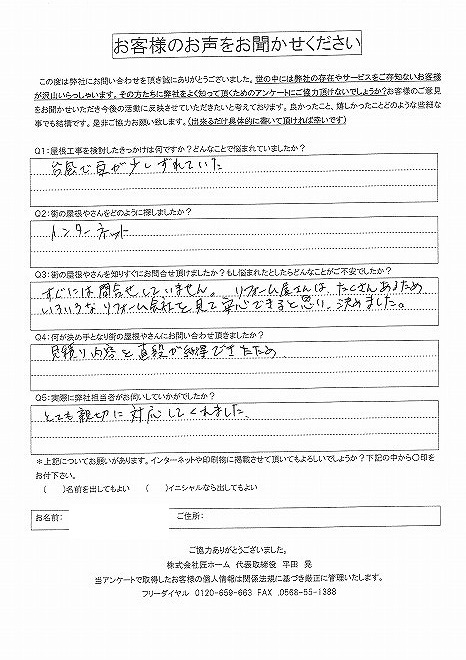 お客様のお声をお聞かせください
この度は弊社にお問い合わせを頂き誠にありがとうございました。世の中には弊社の存在やサービスをご存知ないお客様
が沢山いらっしゃいます。その方たちに弊社をよく知って頂くためのアンケートにご協力頂けないでしょうか?お客様のご意見
をお聞かせいただき今後の活動に反映させていただきたいと考えております。良かったこと、嬉しかったことどのような些細な
事でも結構です。是非ご協力お願い致します。(出来るだけ具体的に書いて頂ければ幸いです)
Q1:屋根工事を検討したきっかけは何ですか?どんなことで悩まれていましたか?
台風で瓦が少しずれていた
Q2:街の屋根やさんをどのように探しましたか?
インターネット
Q3:街の屋根やさんを知りすぐにお問合せ頂けましたか?もし悩まれたとしたらどんなことがご不安でしたか?
すぐには問合せしていません。リフォーム屋さんは、たくさんあるため
いろいろなリフォーム会社を見て安心できると思い、決めました。
Q4:何が決め手となり街の屋根やさんにお問い合わせ頂けましたか?
見積り内容と値段が納得できたため
Q5:実際に弊社担当者がお伺いしていかがでしたか?
とても親切に対応してくれました。
*上記についてお願いがあります。インターネットや印刷物に掲載させて頂いてもよろしいでしょうか?下記の中から○印を
お付下さい。
( )名前を出してもよい ( )イニシャルなら出してもよい
お名前: ご住所:
ご協力ありがとうございました。
株式会社匠ホーム 代表取締役 平田 晃
当アンケートで取得したお客様の個人情報は関係法規に基づき厳正に管理いたします。
フリーダイヤル 0120-659-663 FAX .0568-55-1388